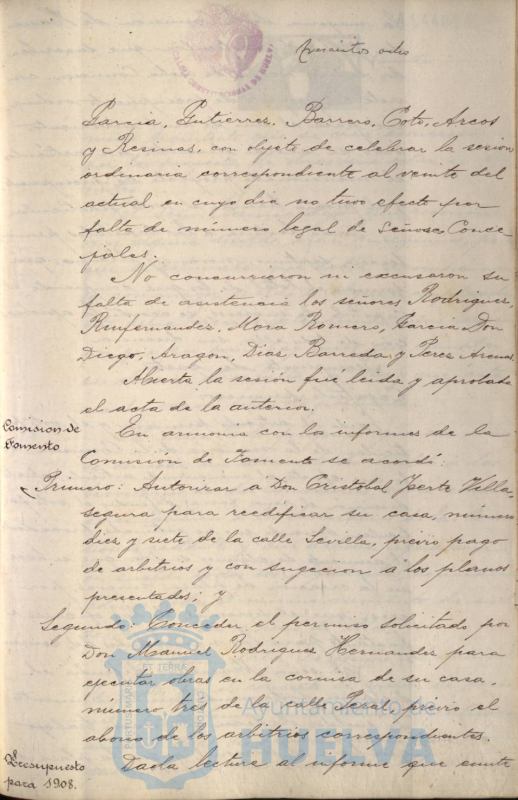 Trescientos ocho
García, Gutierrez, Barrero, Coto, Arcos
y Resinas, con objeto de celebrar la sesion
ordinaria correspondiente al veinte del
actual en cuyo dia no tuvo efecto por
falta de número legal de Señores Conce-
jales.
No concurrieron ni excusaron su
falta de asistencia los señores Rodriguez,
Ruifernandez, Mora Romero, Garcia Don
Diego, Aragon, Diaz Barreda y Perez Arenas.
Abierta la sesión fué leida y aprobada
el acta de la anterior.
Comision de
Fomento
En armonia con los informes de la
Comisión de Fomento se acordó:
Primero: Autorizar a Don Cristobal Villa-
segura para reedificar su casa, número
diez y siete de la calle Sevilla, previo pago
de arbitrios y con sugecion a los planos
presentados; y
Segundo: Conceder el permiso solicitado por
Don Manuel Rodriguez Hernandez para
ejecutar obras en la cornisa de su casa,
número tres de la calle Peral, previo el
abono de los arbitrios correspondientes.
Presupuesto
para 1908.
Dada lectura al informe que emite
PORTUS MARIS ET TERRAE CUSTODIA
Ayuntamiento de
HUELVA